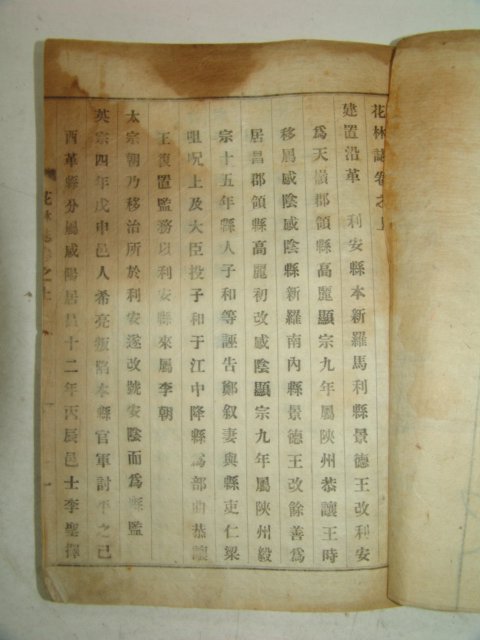 花林誌卷之上
建置沿革 利安縣本新羅馬利縣景德王改利安
爲天嶺郡領縣高麗顯宗九年屬陜州恭讓王時
移屬感陰感陰縣新羅南內縣景德王改餘善爲
居昌郡領縣高麗初改感陰顯宗九年屬陜州毅
宗十五年縣人子和等誣告鄭叙妻與縣吏仁梁
咀呪上及大臣投子和于江中降縣爲部曲恭讓
王復置監務以利安縣來屬李朝
太宗朝乃移治所於利安遂改號安陰而爲縣監
英宗四年戊申邑人希亮叛陷本縣官軍討平之己
酉革縣分屬咸陽居昌十二年丙辰邑士李聖擇
花林誌卷之上 一